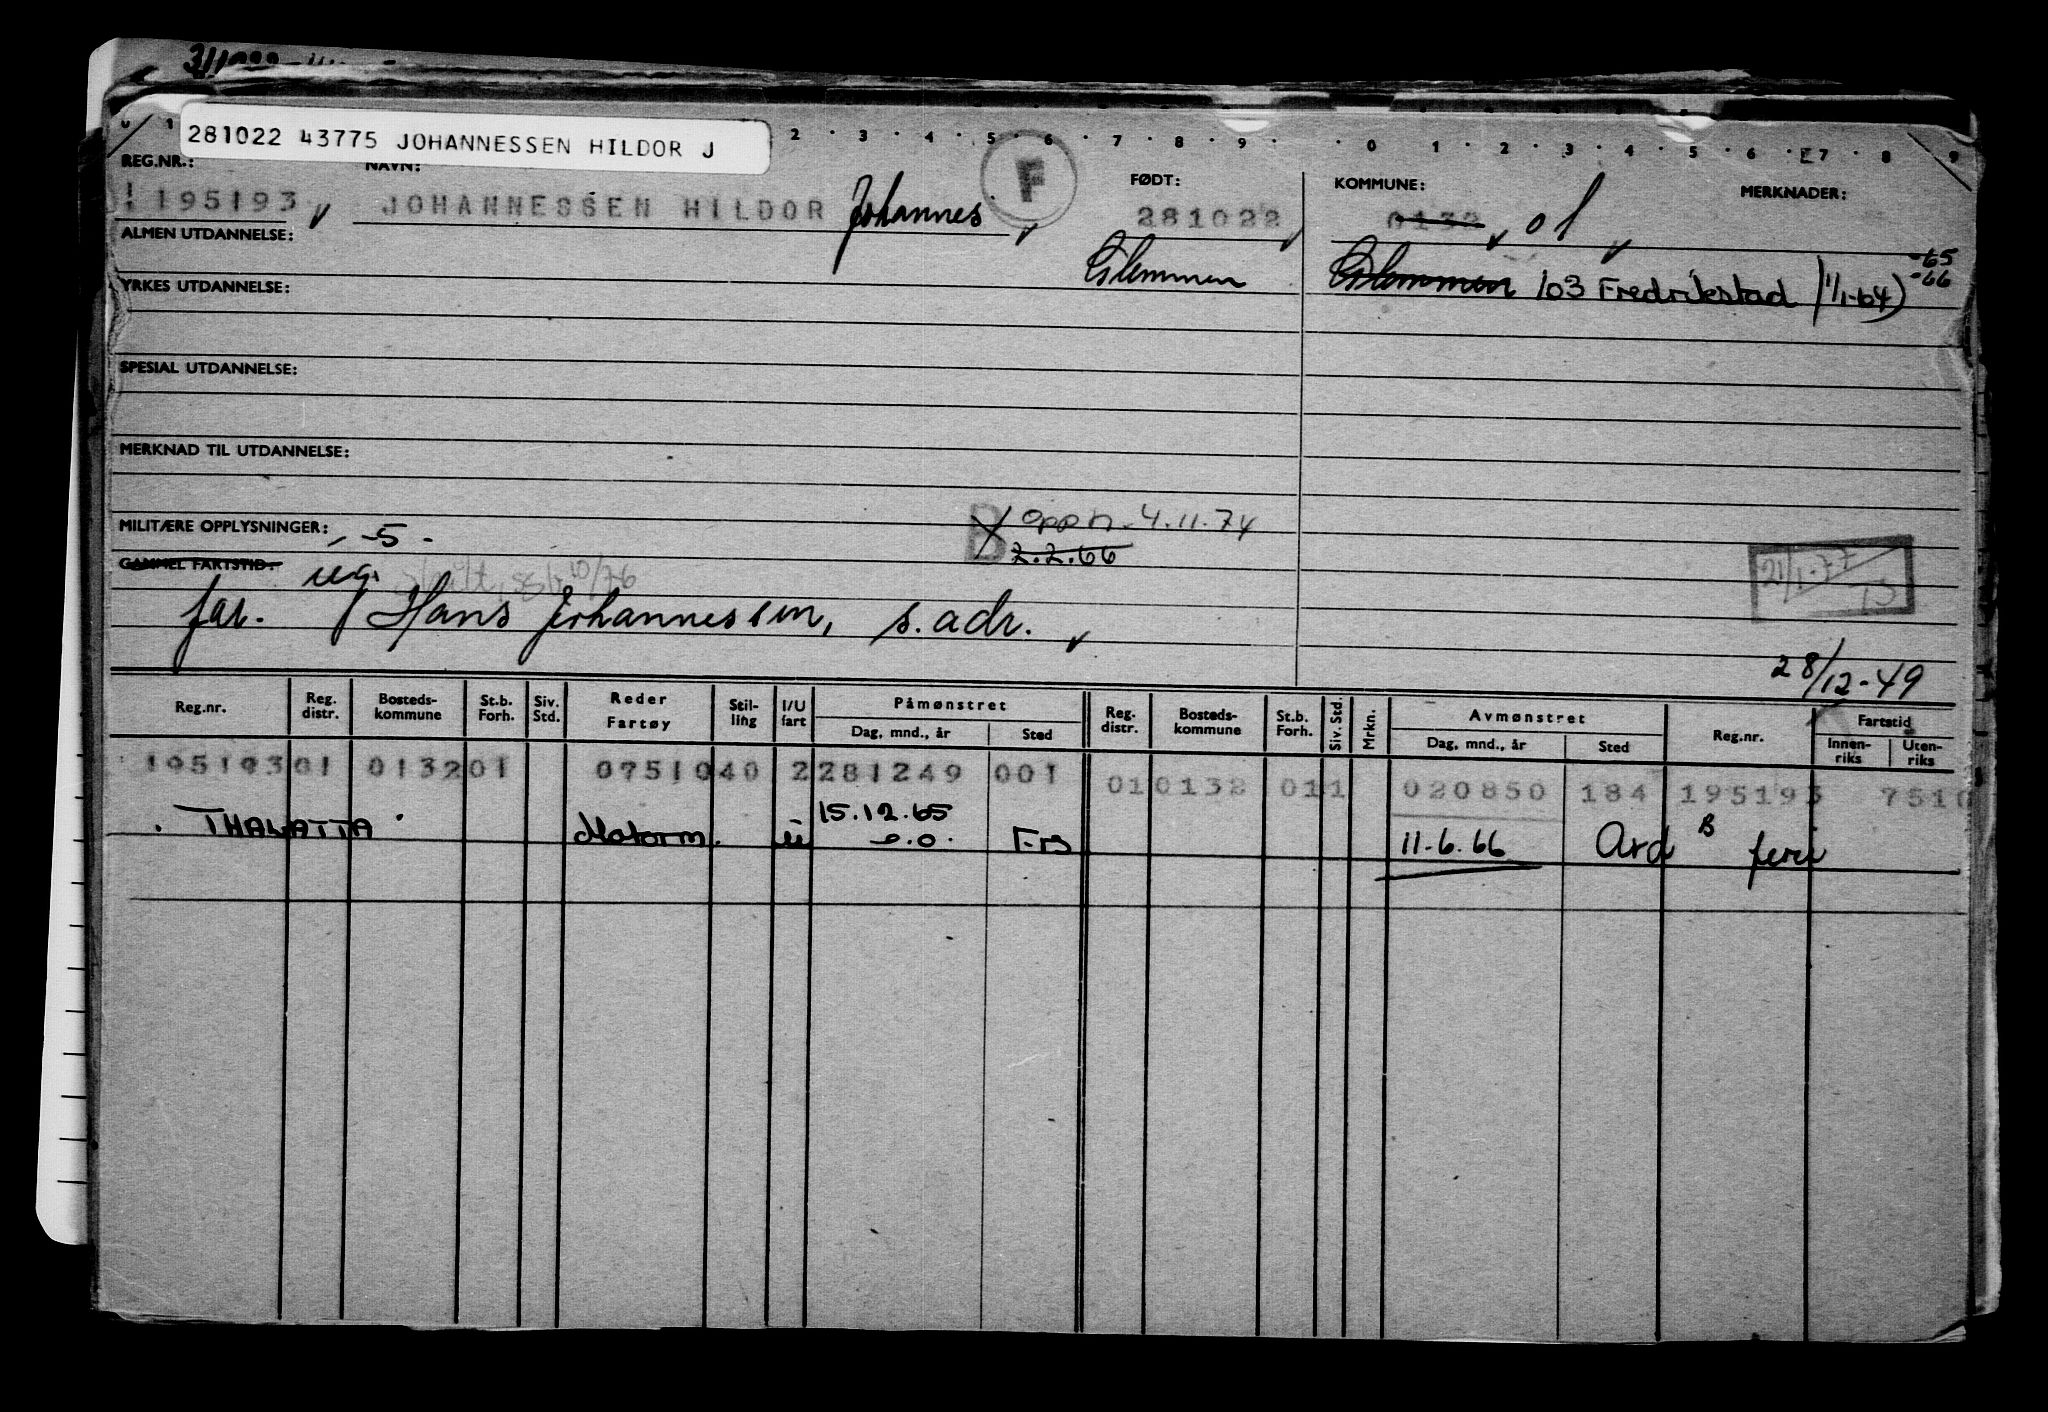 281022 43775 JOHANNESSEN HILDOR J
REG.NR.: NAVN: FØDT: KOMMUNE: MERKNADER:
195193 JOHANNESSEN HILDOR Johannes F 281022 0132 01
ALMEN UTDANNELSE:
Glemmen Glemmen 103 Fredrikstad (1/1-64) -65
-66
YRKES UTDANNELSE:
SPESIAL UTDANNELSE:
MERKNAD TIL UTDANNELSE:
MILITÆRE OPPLYSNINGER: -5- B X oppn. 4.11.74
2.2.66
GAMMEL FARTSTID: ug. 21/1-77
far. Hans Johannessen, s.adr.
28/12-49
Reg.nr. Reg. distr. Bosteds-kommune St.b. Forh. Siv. Std. Reder Fartøy Stil-ling I/U fart Påmønstret Dag, mnd., år Sted Reg. distr. Bosteds-kommune St.b. Forh. Siv. Std. Mrkn. Avmønstret Dag, mnd., år Sted Reg.nr. Fartstid Innen-riks Uten-riks
195193 01 0132 01 07510 40 2 281249 001 01 0132 01 1 020850 184 195193 7510
THALATTA Motorm. u 15.12.65 e.o. Frs 11.6.66 Ard B ferie